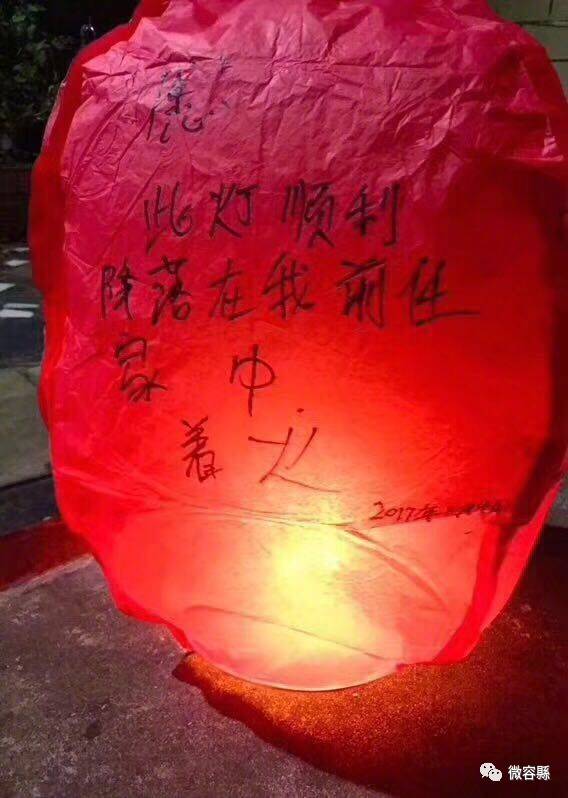 此灯顺利
降落在我前任
家 中.
着火
2017年
微容縣